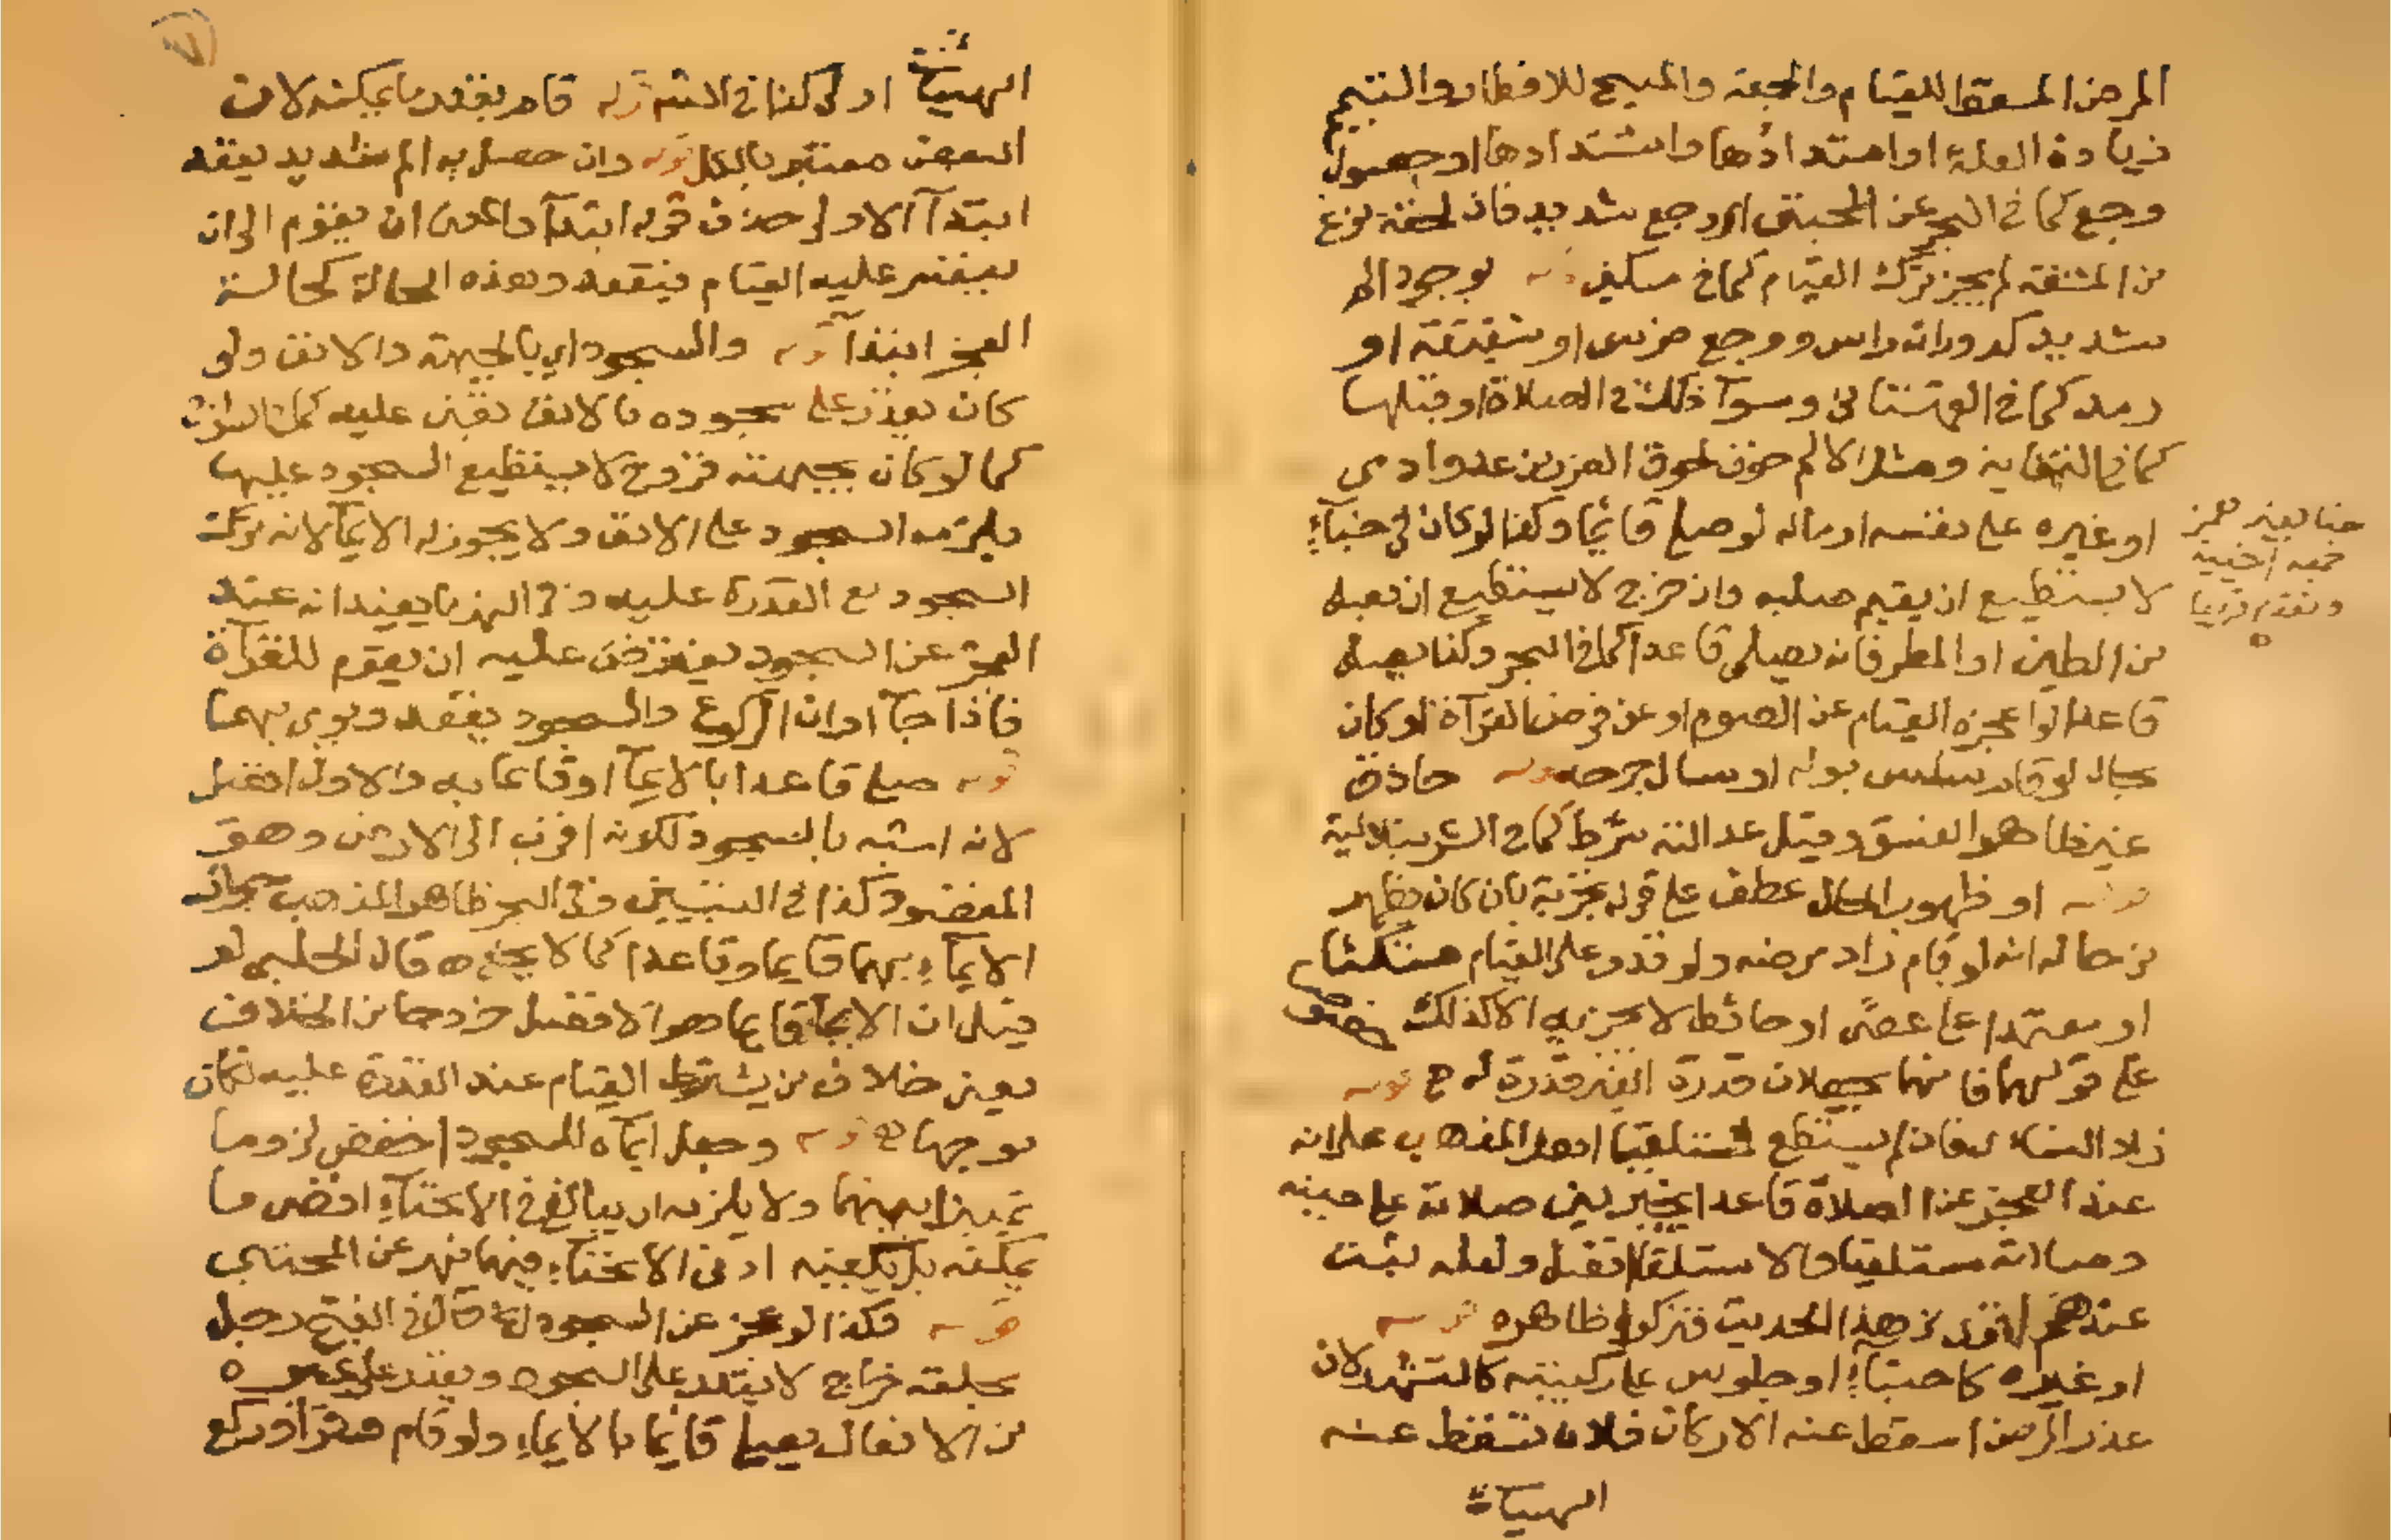 المرض المسقط للقيام والجمعة والمبيح للافطار والتيمم
زيادة العلة او امتدادها واشتدادها او حصول
وجع كما في البحر عن المجتبى اي وجع شديد فان لحقه نوع
من المشقة لم يجز ترك القيام كما في مسكين قوله لوجود الم
شديد كدوران راس ووجع ضرس او شقيقة او
رمد كما في القهستاني وسوآ ذلك في الصلاة او قبلها
كما في النقاية ومثل الالم خوف لحوق الضرر من عدو ادمي
او غيره على نفسه او ماله لو صلى قائما وكذا لو كان في خبآء
لا يستطيع ان يقيم صلبه وان خرج لا يستطيع ان يصلي
من الطين او المطر فانه يصلي قاعدا كما في البحر وكذا يصلي
قاعدا لو اعجزه القيام عن الصوم او عن فرض القرآة او كان
بحال لو قام سلس بوله او سال جرحه قوله حاذق
غير ظاهر الفسق وقيل عدالته شرط كما في الشرنبلالية
قوله او ظهور الحال عطف على قوله تجربة بان كان يظهر
من حاله انه لو قام زاد مرضه ولو قدر على القيام متكئا
او معتمدا على عصى او حائط لا يجزيه الا كذلك خصوصا
على قولهما فانهما يجعلان قدرة الغير قدرة له ح قوله
فان لم يستطع فمستلقيا اهل المذهب على انه
عند العجز عن الصلاة قاعدا يخير بين صلاته على جنبه
وصلاته مستلقيا والاستلقا افضل ولعله ثبت
عندهم اقوى من هذا الحديث فتركوا ظاهره قوله
او غيره كاحتبآء او جلوس على ركبتيه كالتشهد لان
عذر المرض اسقط عنه الاركان فلان تسقط عنه
الهيآت
خبا بغير همز
جمعه اخبية
وتقدم قريبا
الهيئآت اولى كذا في الشر قوله قام بقدر ما يمكنه لان
البعض معتبر بالكل قوله وان حصل به الم شديد يقعد
ابتدآ الاولى حذف قوله ابتدآ والمعنى ان يقوم الى ان
يعسر عليه القيام فيقعد وهذه الحالة كحالة
العجز ابتدآ قوله والسجود اي بالجبهة والانف ولو
كان يقدر على سجوده بالانف تعين عليه كما
كما لو كان بجبهته قروح لا يستطيع السجود عليها
يلزمه السجود على الانف ولا يجوز له الايمآ لانه ترك
السجود مع القدرة عليه وفي النهر ما يفيد انه عند
العجز عن السجود يفترض عليه ان يقوم للقرآة
فاذا جآ اوان الركوع والسجود يقعد ويومي بهما
قوله صلى قاعدا بالايمآ او قائما به والاول افضل
لانه اشبه بالسجود لكونه اقرب الى الارض وهو
المقصود كذا في التبيين وفي البحر ظاهر المذهب جواز
الايمآء بهما قايما وقاعدا كما لا يخفى ه قال الحلبي لو
قيل ان الايمآ قايما هو الافضل خروجا من الخلاف
يعني خلاف من يشترط القيام عند القدرة عليه لكان
موجها ه قوله وجعل ايمآه للسجود اخفض لزوما
تمييزا بينهما ولا يلزمه ان يبالغ في الانحنآء اقصى ما
يمكنه بل يكفيه ادنى الانحنآء فيهما نهر عن المجتبى
قوله وكذا لو عجز عن السجود قال في الفتح رجل
بحلقه خراج لا يقدر على السجود ويقدر على غيره
من الافعال يصلي قائما بالايماء ولو قام وقرا وركع